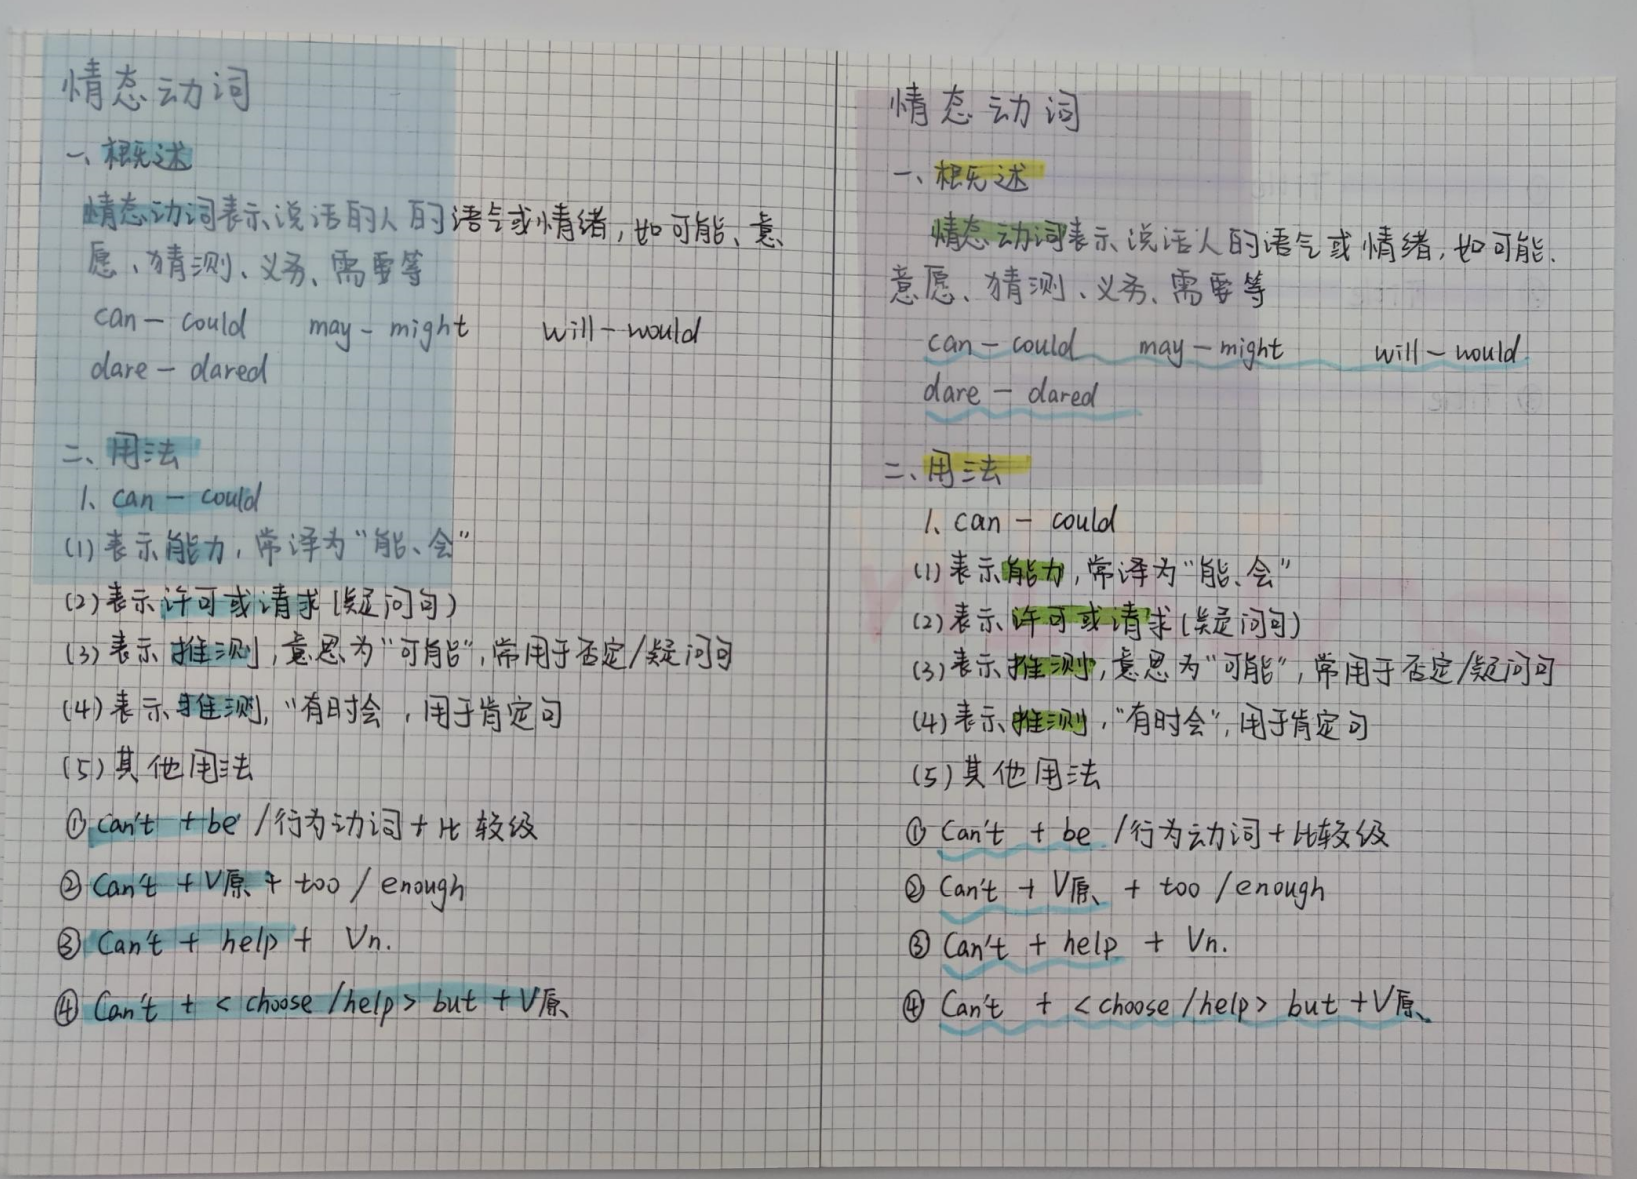 情态动词
一、概述
情态动词表示说话的人的语气或情绪，如可能、意
愿、猜测、义务、需要等
can－could may－might will－would
dare－dared
二、用法
1、can－could
(1)表示能力，常译为“能、会”
(2)表示许可或请求(疑问句)
(3)表示推测，意思为“可能”，常用于否定/疑问句
(4)表示推测，“有时会，用于肯定句
(5)其他用法
① can't + be /行为动词+比较级
② Can't + V原 + too / enough
③ Can't + help + Vn.
④ Can't + < choose /help> but +V原、
情态动词
一、概述
情态动词表示说话人的语气或情绪，如可能、
意愿、猜测、义务、需要等
can－could may－might will－would
dare－dared
二、用法
1、can－could
(1)表示能力，常译为“能、会”
(2)表示许可或请求(疑问句)
(3)表示推测，意思为“可能”，常用于否定/疑问句
(4)表示推测，“有时会”，用于肯定句
(5)其他用法
① Can't + be /行为动词+比较级
② Can't + V原、 + too /enough
③ Can't + help + Vn.
④ Can't + < choose /help> but +V原、